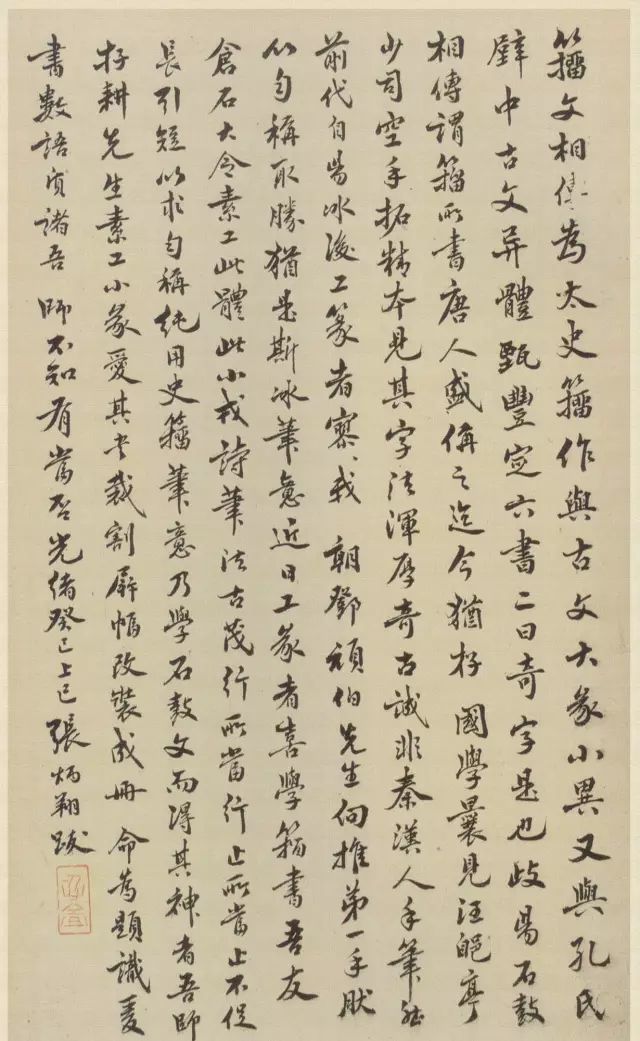 籀文相傳為太史籀作與古文大篆小異又與孔氏
壁中古文异體甄豐定六書二曰奇字是也歧陽石鼓
相傳謂籀所書唐人盛偁之迄今猶存國學曩見汪郋亭
少司空手拓精本見其字法渾厚奇古誠非秦漢人手筆然
前代自陽冰後工篆者寥〻我朝鄧頑伯先生何推弟一手肰
以勻稱取勝猶是斯冰筆意近日工篆者喜學籀書吾友
倉石大令素工此體此小戎詩筆法古茂行所當行止所當止不促
長引短以求勻稱純用史籀筆意乃學石鼓文而得其神者吾師
存耕先生素工小篆愛其書裁割屏幅改裝成冊命為題識爰
書數語質諸吾師不知有當否光緒癸巳上巳張炳翔跋